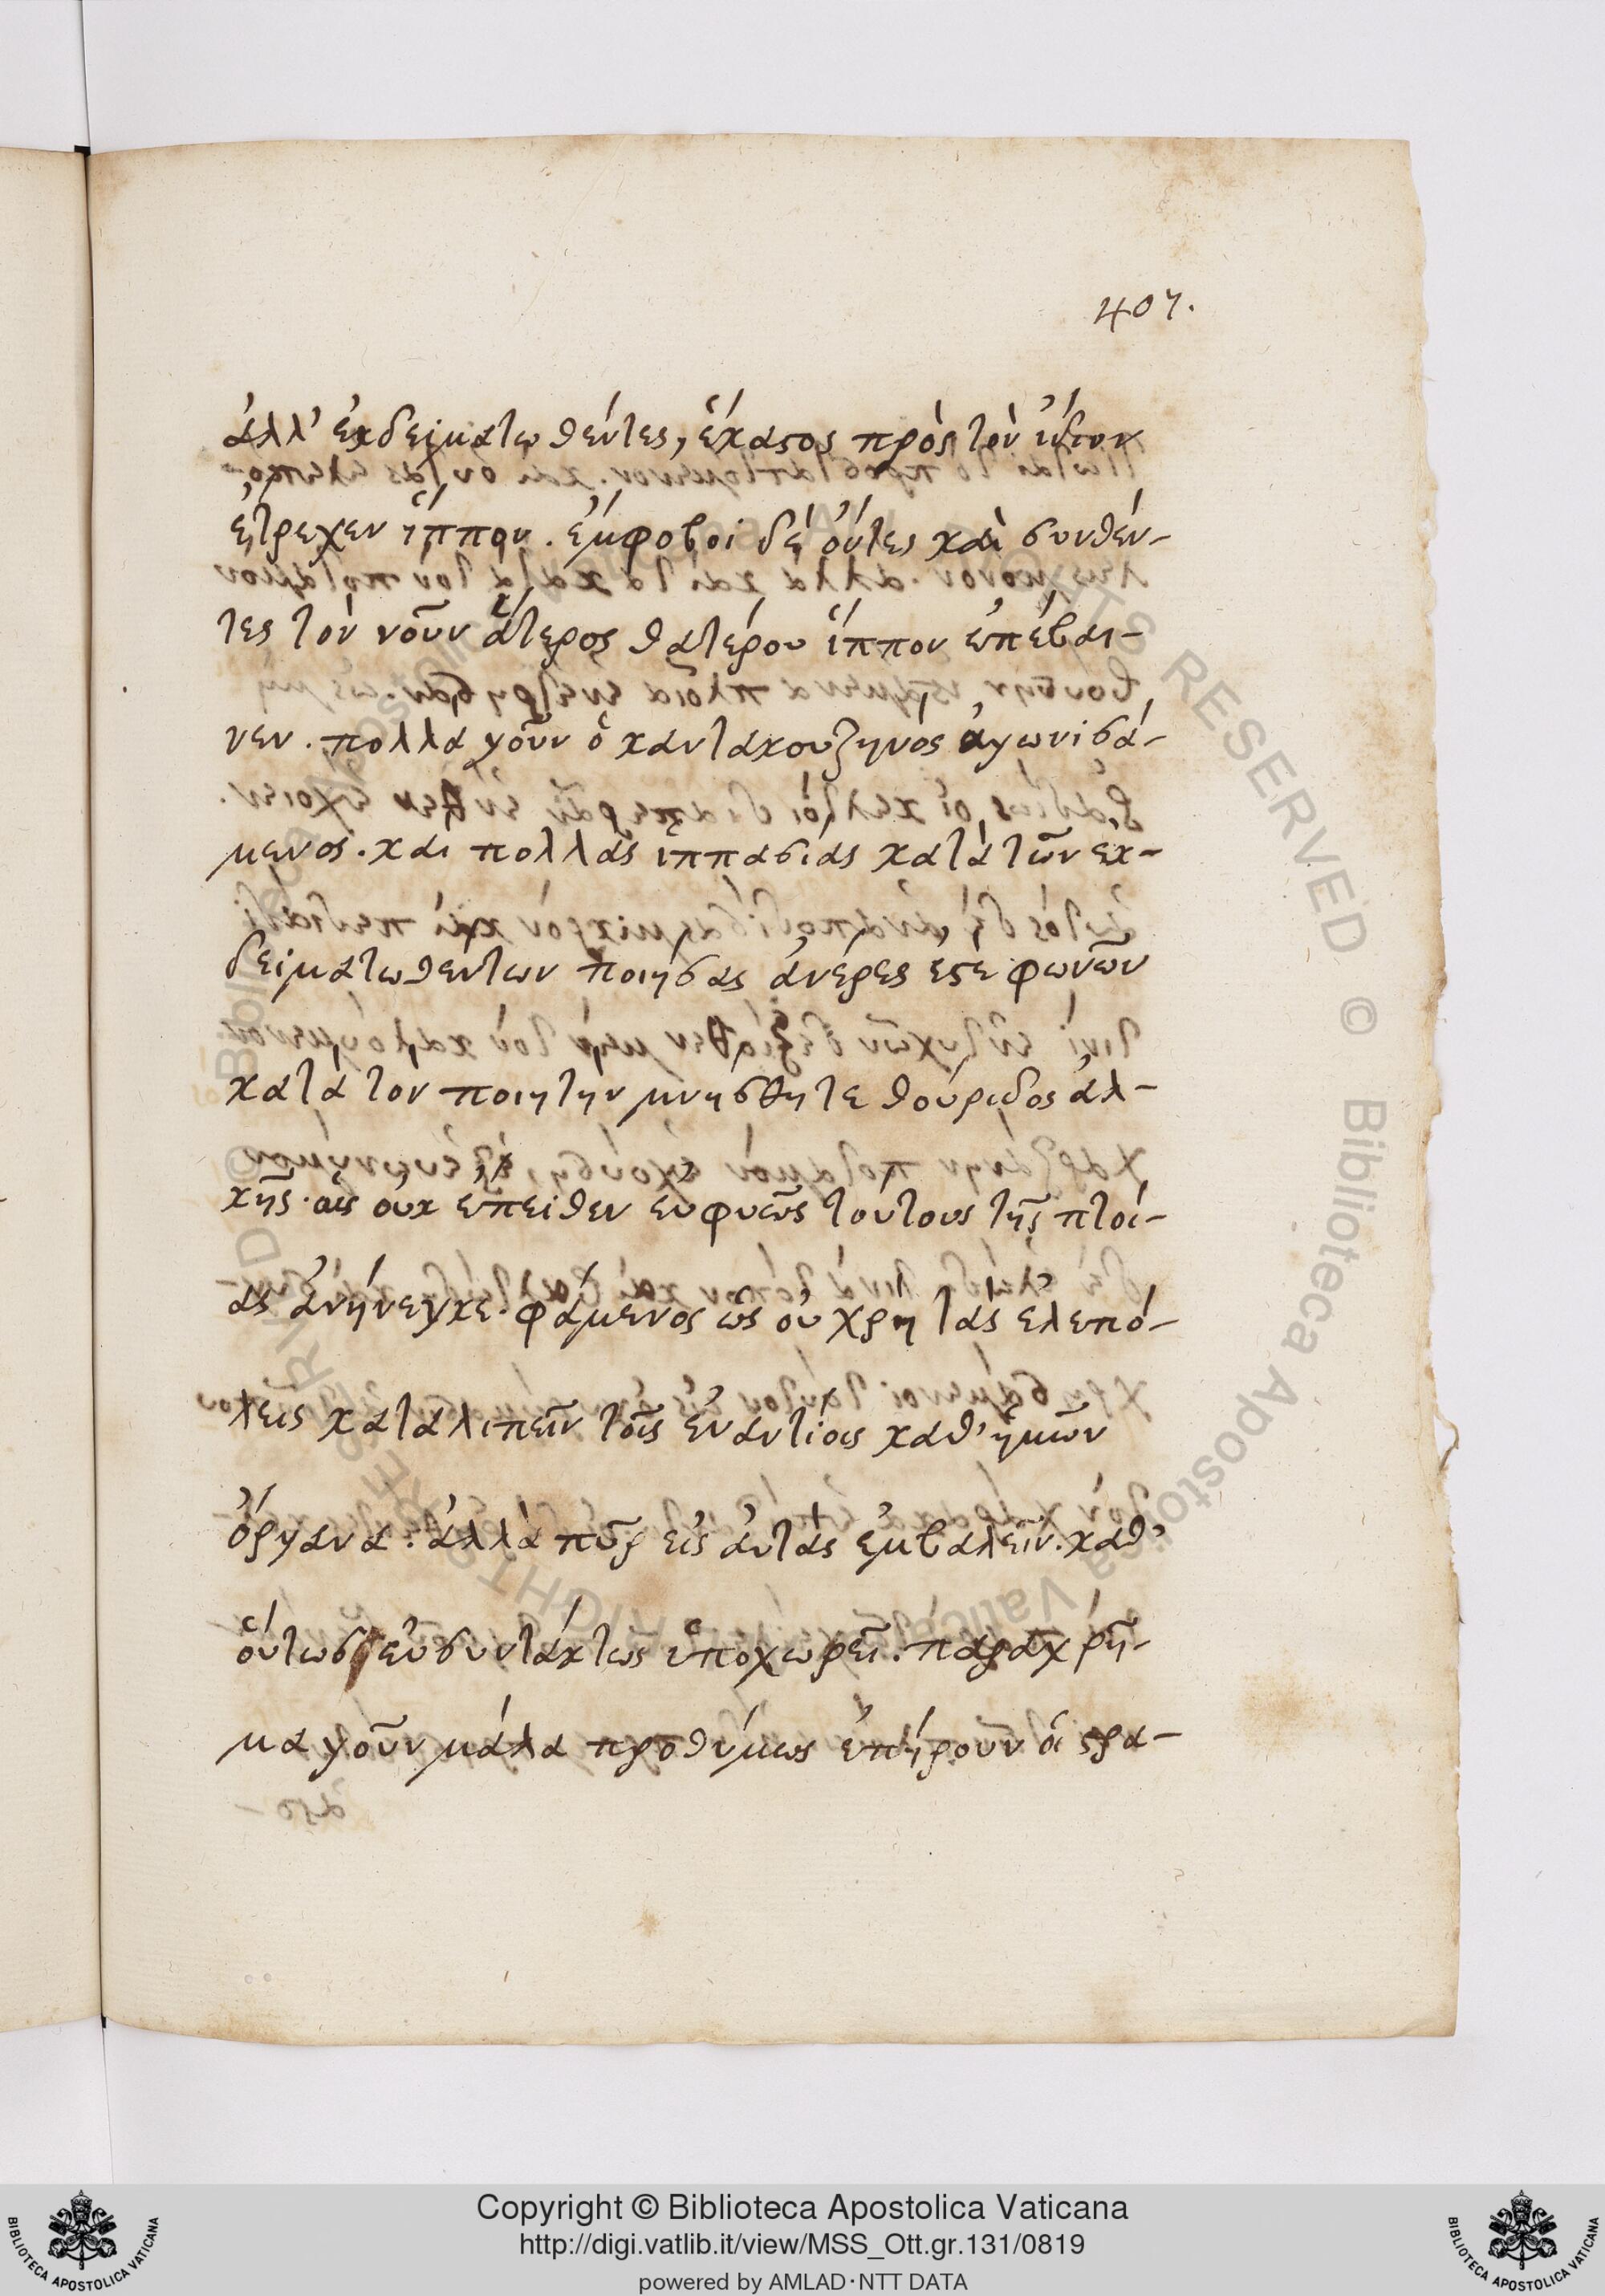 407.
ἀλλ' ἐκδειματωθέντες, ἕκαστος πρὸς τὸν ἴδιον
ἔτρεχεν ἵππον. ἔμφοβοι δὲ ὄντες καὶ συνθέν-
τες τὸν νοῦν ἅτερος θατέρου ἵππον ἐπέβαι-
νεν. πολλὰ γοῦν ὁ καντακουζηνὸς ἀγωνισά-
μενος. καὶ πολλὰς ἱππασίας κατὰ τῶν εκ-
δειματωθέντων ποιήσας ἀνέρες ἐστὲ φωνῶν
κατὰ τον ποιητὴν μνήσθητε θούριδος ἀλ-
κῆς. ὡς οὐκ ἔπειθεν εὐφυῶς τούτους τῆς πτοί-
ας ἀνήνεγκε. φάμενος ὡς οὐ χρὴ τὰς ελεπό-
λεις καταλιπεῖν τοῖς ἐναντίοις καθ' ἡμῶν
ὄργανα. ἀλλὰ πῦρ εἰς ἀυτὰς ἐμβαλεῖν. καθ'
οὕτως εὐσυντάκτως ὑποχωρεῖ. παραχρῆ-
μα γοῦν μάλα προθύμως ἐπήρουν οἱ στρα-
Copyright © Biblioteca Apostolica Vaticana
http://digi.vatlib.it/view/MSS_Ott.gr.131/0819
powered by AMLAD·NTT DATA
BIBLIOTECA APOSTOLICA VATICANA
BIBLIOTECA APOSTOLICA VATICANA